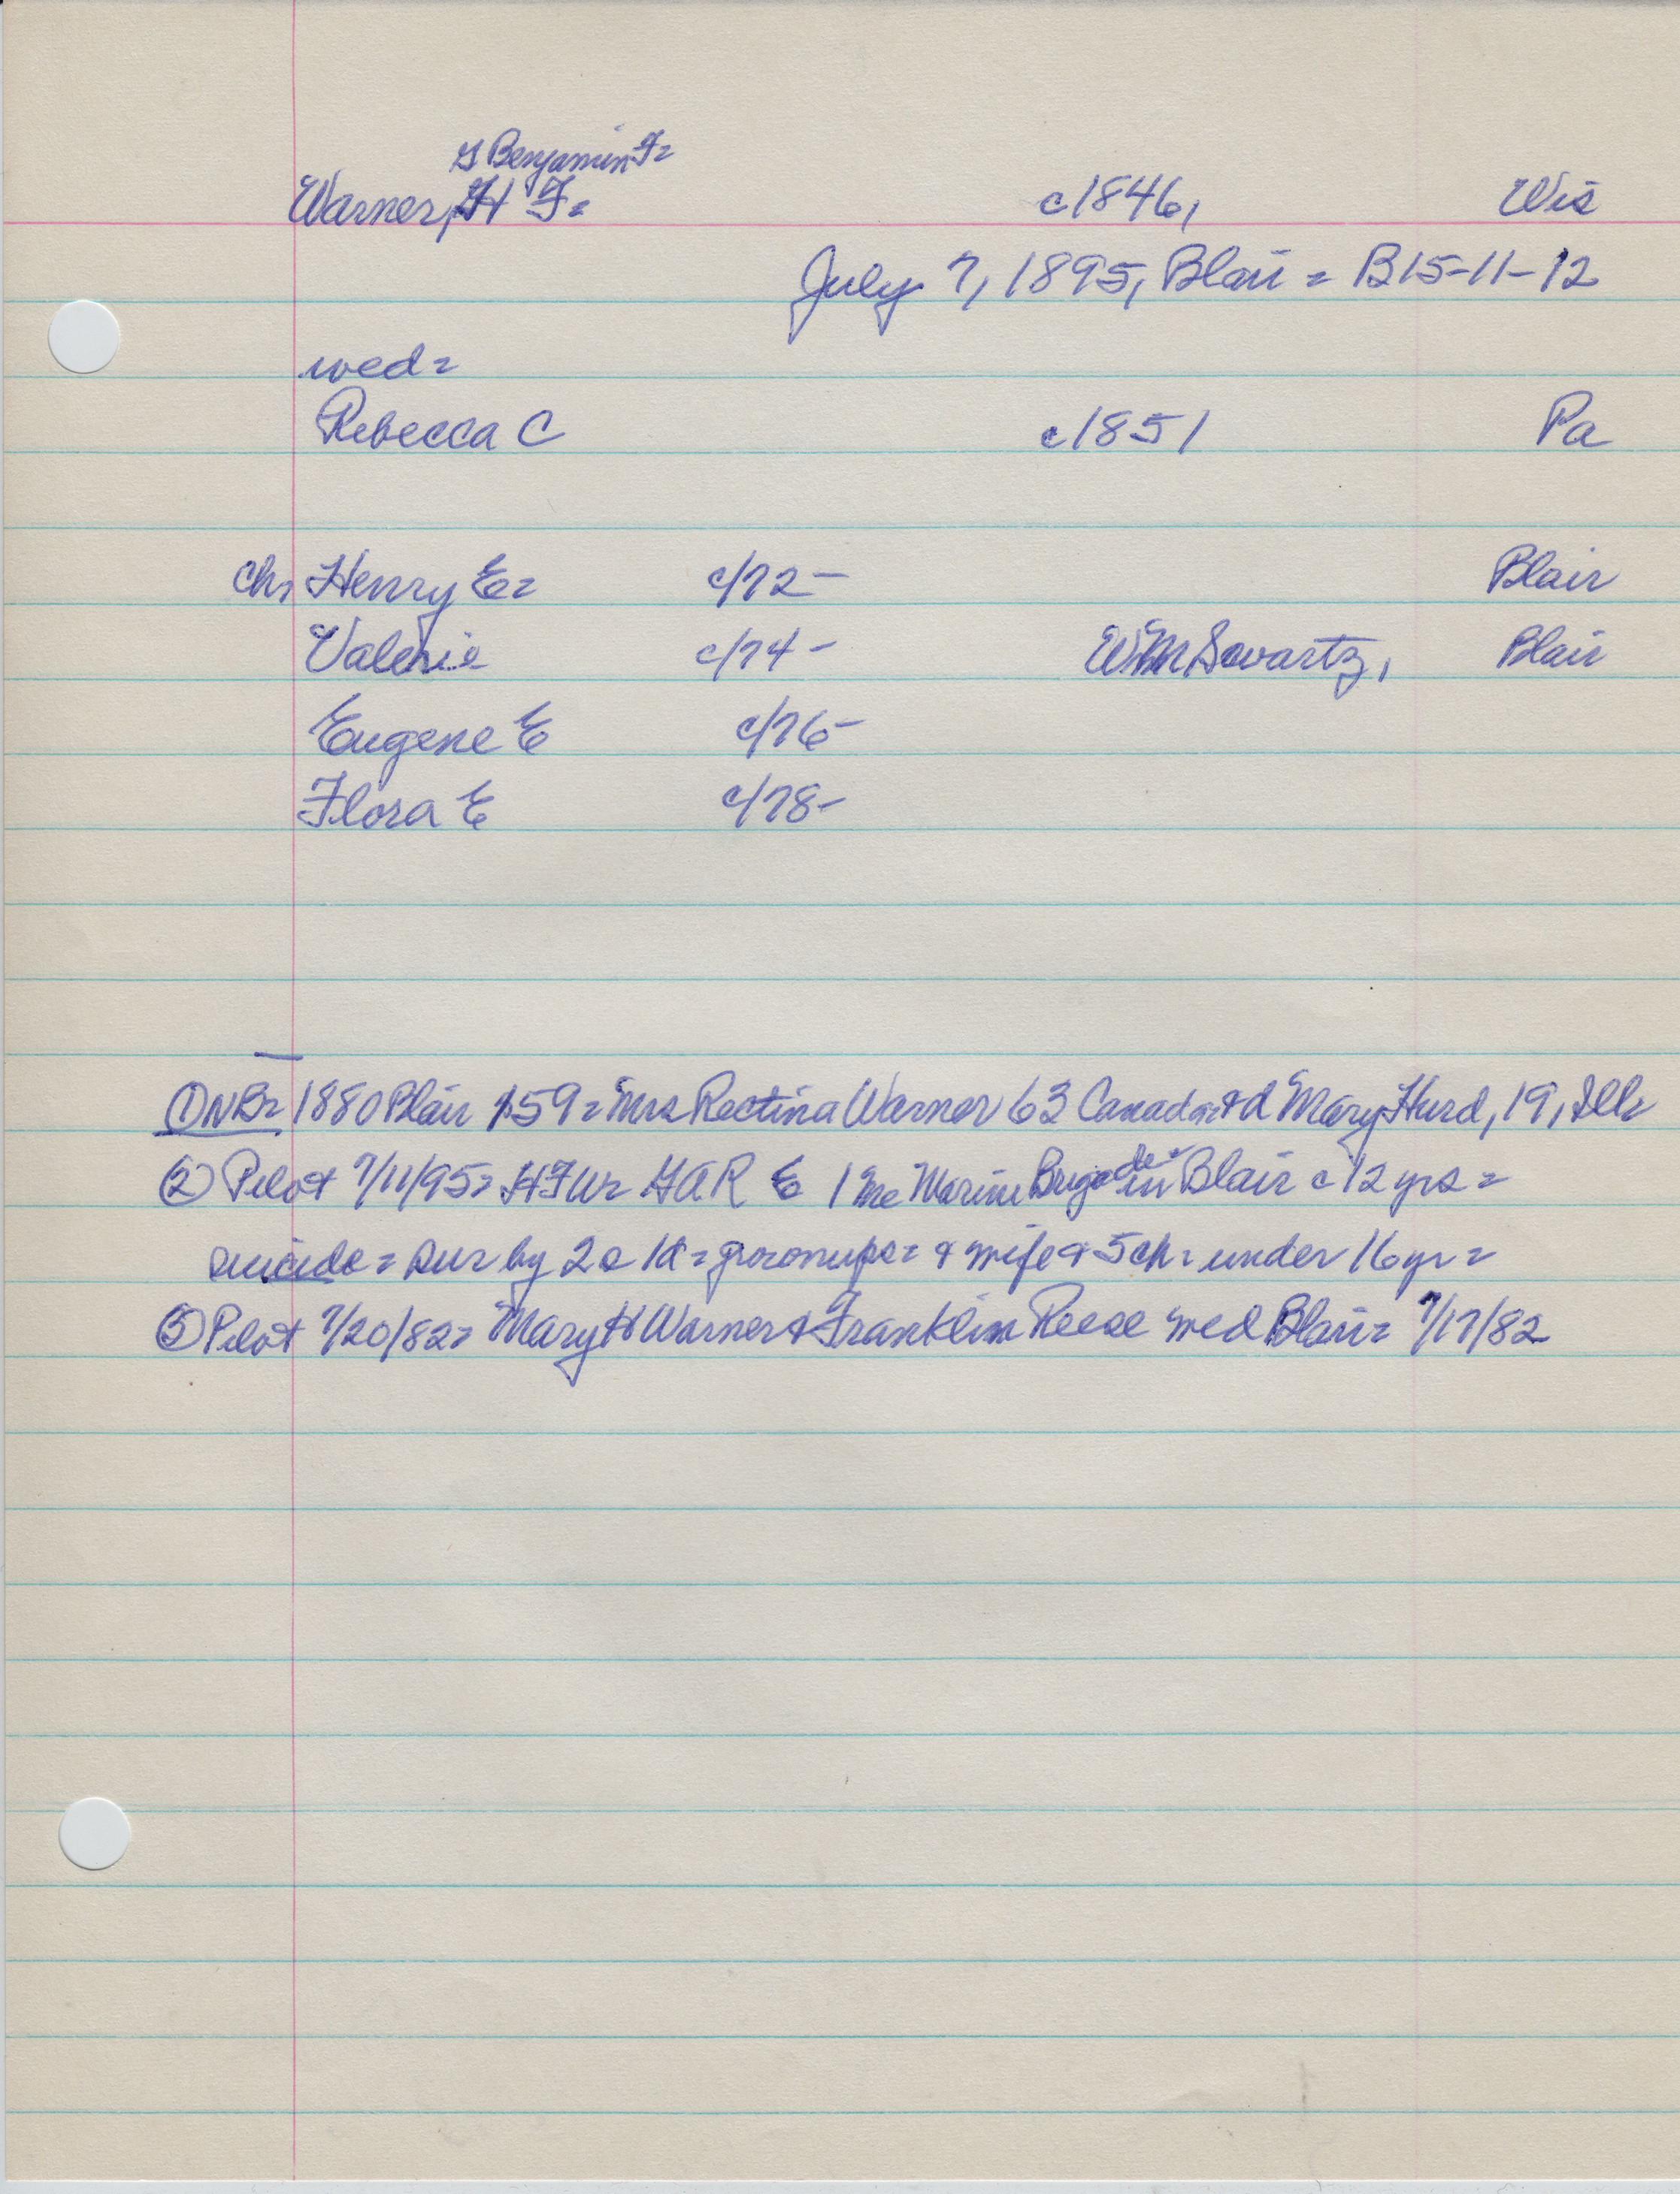 G Benjamin F=
Warner, H F= c1846, Wis
July 7, 1895, Blair = B15-11-12
wed=
Rebecca C c1851 Pa
Ch, Henry E= c/72- Blair
Valerie c/74- Wm Swartz, Blair
Eugene E c/76-
Flora E c/78-
① NB= 1880 Blair 159= Mrs Rectina Warner 63 Canada & d Mary Hurd, 19, Ills
② Pilot 7/11/95= HFWr GAR E 1 Marine Brigade= in Blair c 12 yrs=
suicide= sur by 2s 1d= grownups= & wife & 5 ch= under 16 yr=
③ Pilot 7/20/82= Mary H Warner & Franklin Reese wed Blair= 7/17/82